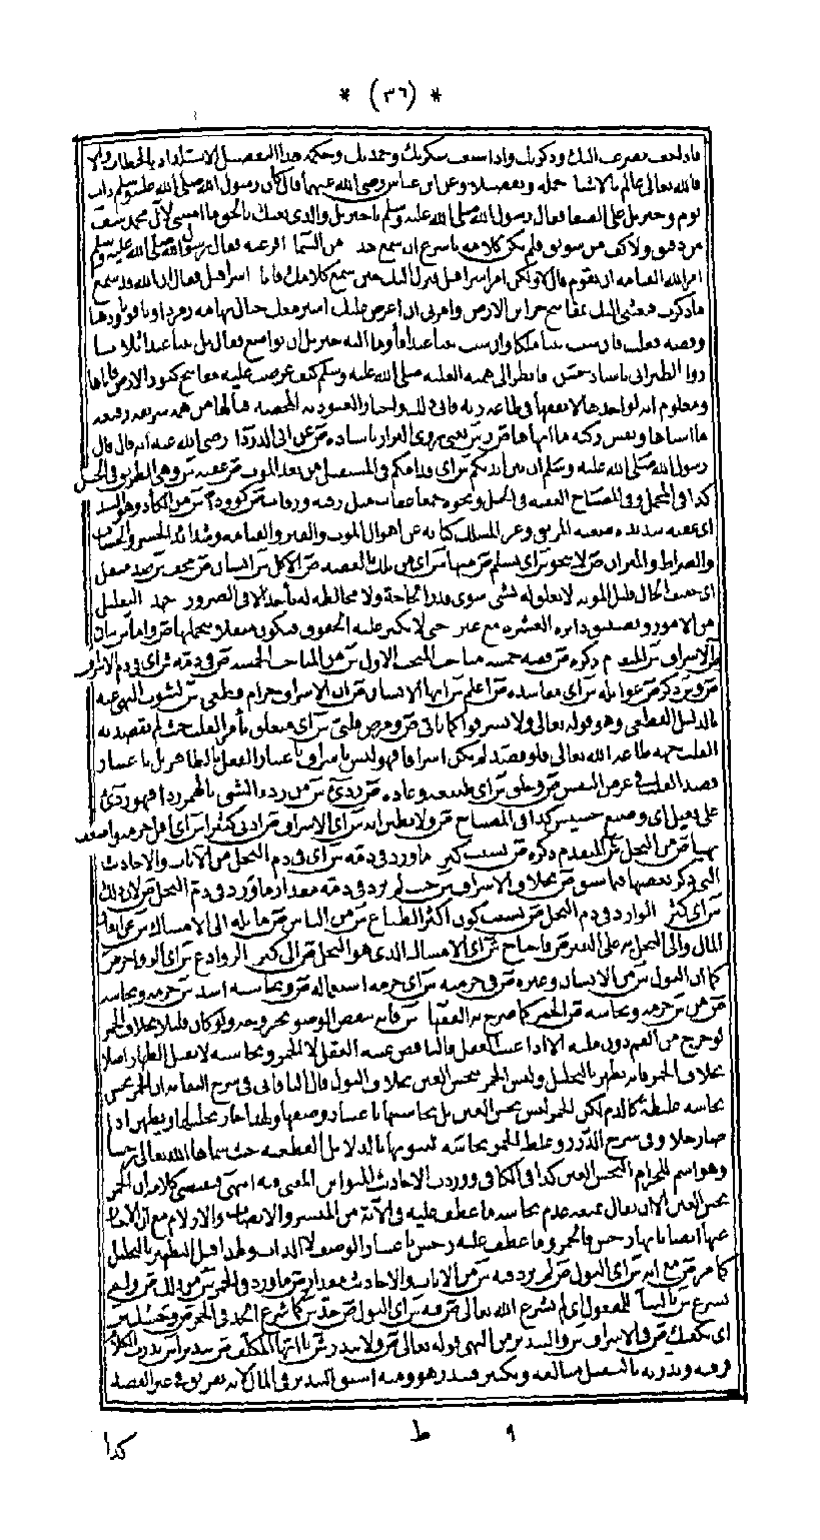 * (٣٦) *
فاذا جعت تضرعت اليك وذكرتك واذا شبعت شكرتك وحمدتك وحكمة هذا التفصيل الاستلذاذ بالخطاب والا
فالله تعالى عالم بالاشياء جملة وتفصيلا وعن ابن عباس رضى الله عنهما قال كان رسول الله صلى الله عليه وسلم ذات
يوم وجبريل على الصفا فقال رسول الله صلى الله عليه وسلم يا جبريل والذى بعثك بالحق ما امسى لآل محمد سفة
من دقيق ولا كف من سويق فلم يكن كلامه باسرع ان سمع هدة من السماء افزعته فقال رسول الله صلى الله عليه وسلم
امر الله القيامة ان تقوم قال لا ولكن امر اسرافيل فنزل اليك حين سمع كلامك فاتاه اسرافيل فقال ان الله قد سمع
ما ذكرت فبعثنى اليك بمفاتيح خزائن الارض وامرنى ان اعرض عليك اسير معك جبال تهامة زمردا وياقوتا وذهبا
وفضة فعلت فان شئت نبيا ملكا وان شئت نبيا عبدا فأومأ اليه جبريل ان تواضع فقال بل نبيا عبدا ثلاثا
رواه الطبرانى باسناد حسن فانظر الى همته العلية صلى الله عليه وسلم كيف عرضت عليه مفاتيح كنوز الارض فأباها
ومعلوم انه لو اخذها لانفقها فى طاعة ربه فابى ذلك واختار العبودية المحضة فيا لها من همة شريفة رفيعة
ما اسناها ونفس زكية ما ابهاها
رسول الله صلى الله عليه وسلم ان بين ايديكم ش اى قدامكم فى المستقبل من بعد الموت ص عقبة ش وهى الطريق فى الجبل
كذا فى المجمل وفى المصباح العقبة فى الجبل ونحوه جمعها عقاب مثل رقبة ورقاب ص كؤودا ش من الكأد وهو الشد
اى عقبة شديدة صعبة المرتقى وعر المسلك كناية عن اهوال الموت والقبر والقيامة وشدائد الحشر والحساب
والصراط والميزان ص لا ينجو ش اى يسلم ص منها ش اى من تلك العقبة ص الا كل ش انسان ص مخف ش ضد مثقل
اى خفيف الحال قليل المؤنة لا تعلق له بشئ سوى قدر الحاجة ولا مخالطة له بأحد الا فى الضرور
من الامور وتضييق دائرة العشرة مع غير حتى لا تكثر عليه الحقوق فيكون مثقلا بتحملها ص واما ش بيان
الاسراف ش المتقدم ذكره ص ففيه خمسة مباحث المبحث الاول ش من المباحث الخمسة ص فى ذمه ش اى فى ذم الاسراف
ص و ش ذكر ص غوائله ش اى مفاسده ص اعلم ش ايها الانسان ص ان الاسراف حرام قطعى ش لثبوت النهى عنه
بالدليل القطعى وهو قوله تعالى ولا تسرفوا كما يأتى ص ومرض قلبى ش اى متعلق بأمر القلب حيث لم يقصد به
القلب جهة طاعة الله تعالى فلو قصد لم يكن اسرافا فهو ليس باسراف باعتبار الفعل بالظاهر بل باعتبار
قصد القلب فى غرض النفس ص وخلق ش اى طبيعة وعادة ص ردئ ش من ردؤ الشئ بالهمز رداءة فهو ردئ
على فعيل اى وضيع خسيس كذا فى المصباح ص ولا تظن انه ش اى الاسراف ص ادنى كثيرا ش اى اقل حرمة واضعف
نهيا ص من البخل ش المتقدم ذكره ص بسبب كثرة ما ورد فى ذمه ش اى فى ذم البخل من الآيات والاحاديث
التى ذكر بعضها فيما سبق ص بخلاف الاسراف ش حيث لم يرد فى ذمه مقدار ما ورد فى ذم البخل ص لان ذلك
ش اى كثرة الوارد فى ذم البخل ص بسبب كون اكثر الطباع ش من الناس ص مائلة الى الامساك ش عن انفاق
المال والى البخل به على الغير ص فاحتاج ش اى الامساك الذى هو البخل ص الى كثرة الروادع ش اى الزواجر ص
كما ان البول ش من الانسان وغيره ص فى حرمته ش اى حرمة استعماله ص ونجاسته اشد ش حرمة ونجاسة
ص من ش حرمة ونجاسة ص الخمر كما صرح به الفقهاء ش فانه ينقض الوضوء بخروجه ولو كان قليلا بخلاف الخمر
لو خرج من الفم دون ملئه الا اذا غيب العقل فالناقض غيبة العقل لا الخمر ونجاسته لا تقبل الطهارة اصلا
بخلاف الخمر فانه يطهر بالتخليل وليس الخمر بنجس العين بخلاف البول قال الباقانى فى شرح النقاية ان الخمر نجس
نجاسة غليظة كالدم لكن الخمر ليس بنجس العين بل نجاستها باعتبار وصفها ولهذا جاز تخليلها ويطهر اذا
صار خلا وفى شرح الدرر وغلظ الخمر نجاسته لثبوتها بالدلائل القطعية حيث سماها الله تعالى رجسا
وهو اسم للحرام النجس العين كذا فى الكافى ووردت الاحاديث المتواترة المعنى فيه انتهى ومقتضى كلامه ان الخمر
نجس العين الا ان يقال يمنعه عدم نجاسة ما عطف عليه فى الآية من الميسر والانصاب والازلام مع ان الاخبار
عنها ايضا بانها رجس فالخمر وما عطف عليه رجس باعتبار الوصف لا الذات ولهذا قبل التطهير بالتخليل
كما مر ص مع انه ش اى البول ص لم يرد فيه ش من الآيات والاحاديث مقدار ص ما ورد فى الخمر ش من ذلك ص ولم
يشرع ش بالبناء للمفعول اى لم يشرع الله تعالى ص فيه ش اى البول ص حد ش كما شرع الحد فى الخمر ص وحسبك ش
اى يكفيك ص فى الاسراف ش والتبذير من النهى قوله تعالى ص ولا تبذر ش يا ايها المكلف ص تبذيرا ش بذرت الكلام
فرقته وبذرته بالتثقيل مبالغة وتكثير فتبذر هو ومنه اشتق التبذير فى المال لانه تفريق فى غير القصد
٩ ط
كذا